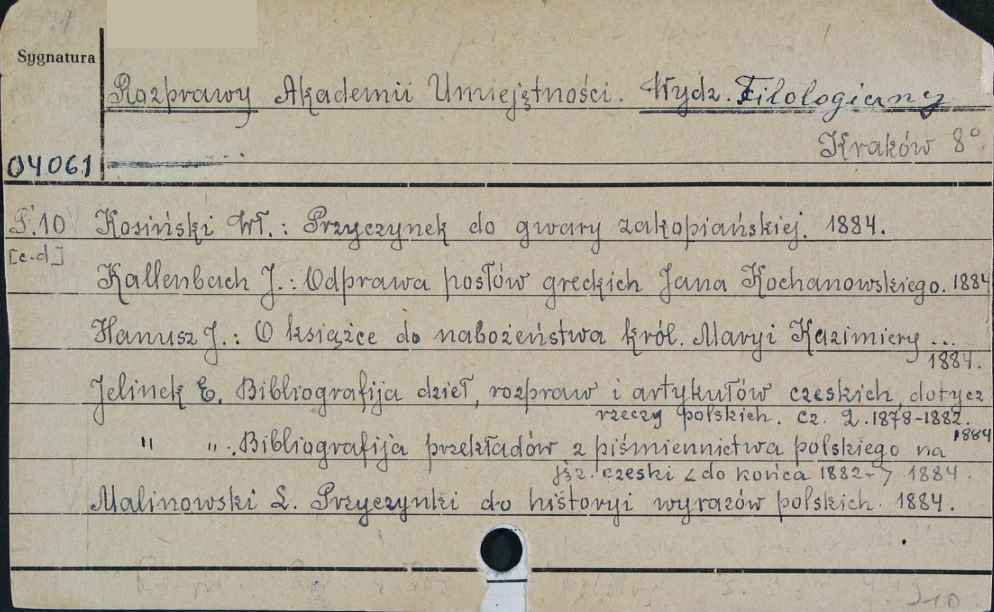 Sygnatura
Rozprawy Akademii Umiejętności. Wydz. Filologiczny
Kraków 8°
04061
T.10 Kosiński Wł.: Przyczynek do gwary zakopiańskiej. 1884.
[c.d]
Kallenbach J.: Odprawa posłów greckich Jana Kochanowskiego. 1884
Hanusz J.: O książce do nabożeństwa król. Maryi Kazimiery ...
1884.
Jelinek E. Bibliografija dzieł, rozpraw i artykułów czeskich, dotycz.
rzeczy polskich. cz. 2. 1878-1882.
1884
" ": Bibliografija przekładów z piśmiennictwa polskiego na
jęz. czeski <do końca 1882-> 1884.
Malinowski L. Przyczynki do historyi wyrazów polskich. 1884.